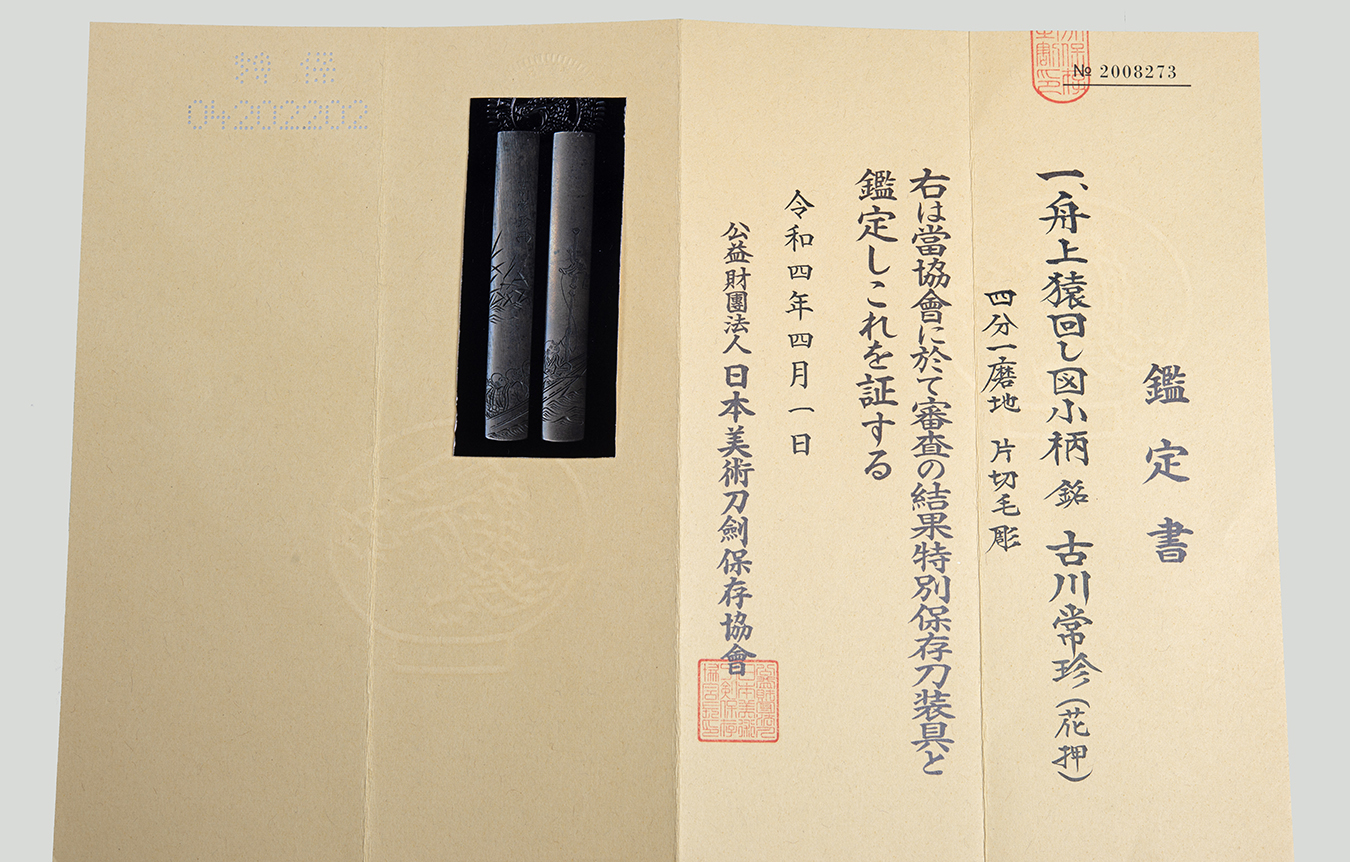 № 2008273
鑑定書
一、舟上猿回し図小柄 銘 古川常珍(花押)
四分一磨地 片切毛彫
右は當協會に於て審査の結果特別保存刀装具と
鑑定しこれを証する
令和四年四月一日
公益財團法人 日本美術刀劍保存協會
特保
04202202